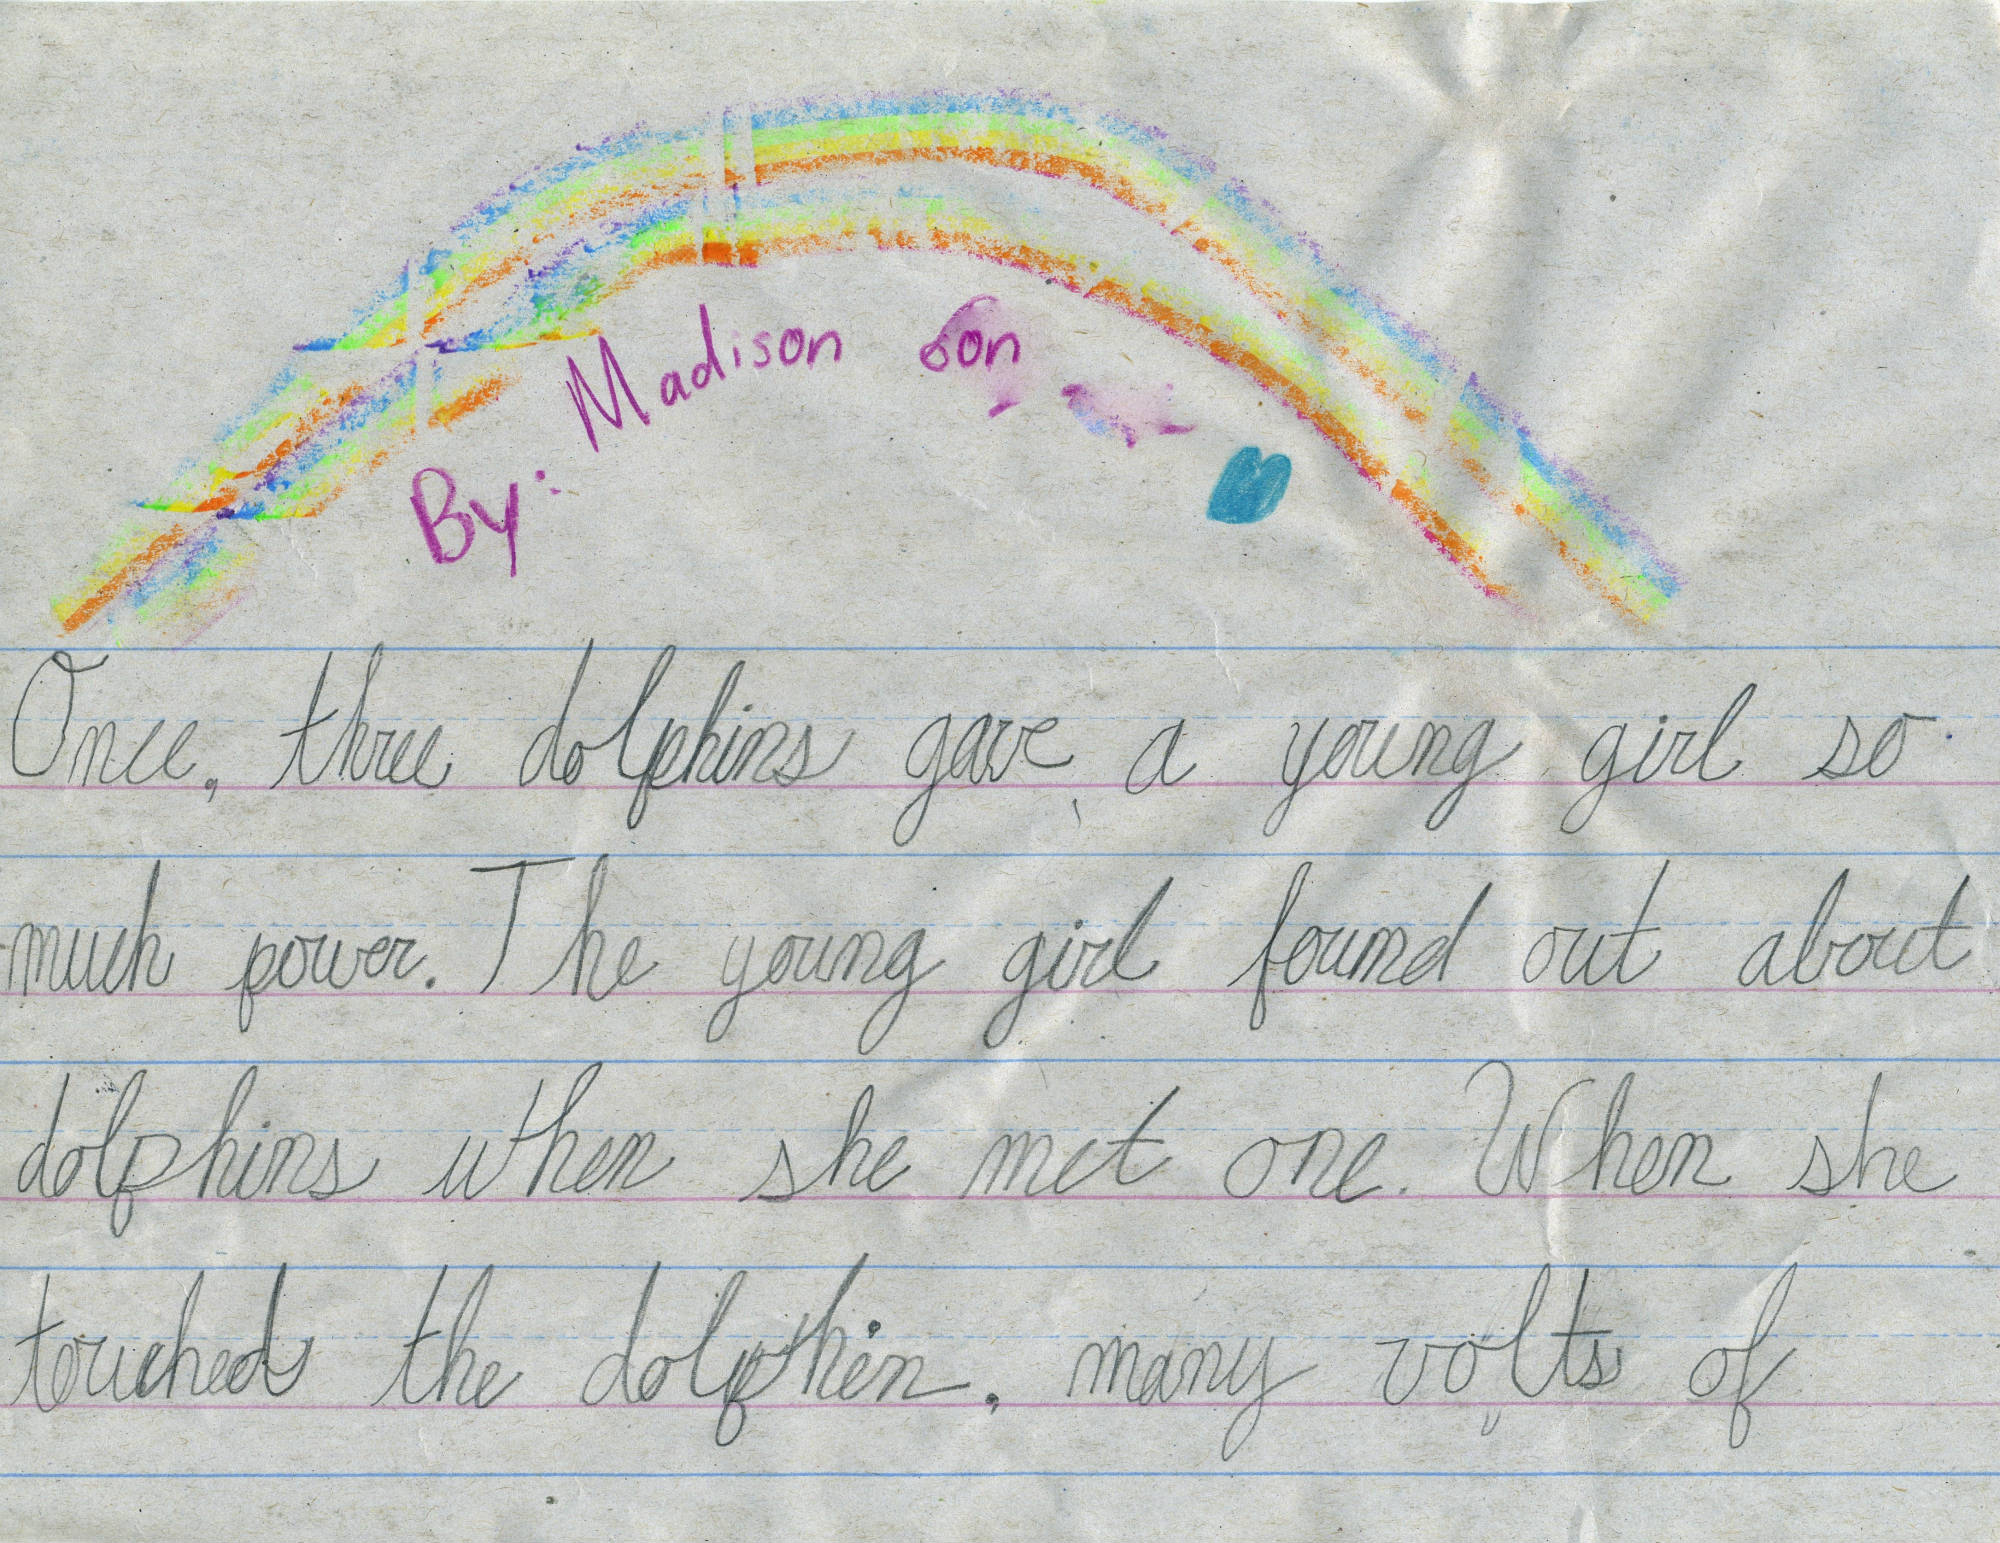 By: Madison
Once, three dolphins gave a young girl so
much power. The young girl found out about
dolphins when she met one. When she
touched the dolphin, many volts of